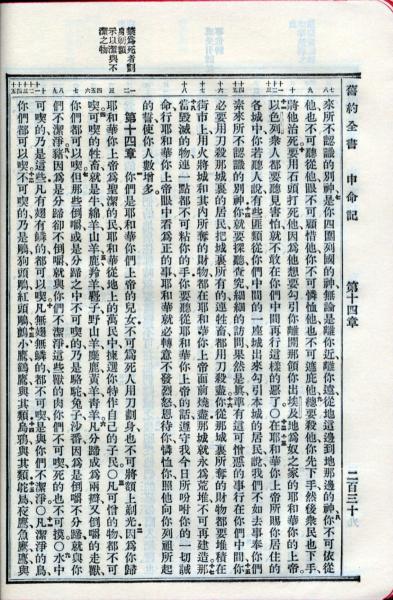 舊約全書　申命記　第十四章　二百三十
來所不認識的別神是你四圍列國的神無論是離你近離你遠從地這邊到地那邊的神你不可依從
他也不可聽從他眼不可顧惜他你不可憐恤他也不可遮庇他總要殺他你先下手然後衆民也下手
將他治死要用石頭打死他因爲他想要勾引你離開那領你出埃及地爲奴之家的耶和華你的上帝
以色列衆人都要聽見害怕就不敢在你們中間再行這樣的惡了〇在耶和華你上帝所賜你居住的
各城中你若聽人說有些匪類從你們中間的一座城出來勾引本城的居民說我們不如去事奉你們
素來所不認識的別神你就要探聽查究細細的訪問果然是眞準有這可憎惡的事行在你們中間你
必要用刀殺那城裏的居民把城裏所有的連牲畜都用刀殺盡你從那城裏所奪的財物都要堆積在
街市上用火將城和其內所奪的財物都在耶和華你上帝面前燒盡那城就永爲荒堆不可再建造那
當毀滅的物連一點都不可粘你的手你要聽從耶和華你上帝的話遵守我今日所吩咐你的一切誡
命行耶和華你上帝眼中看爲正的事耶和華就必轉意不發烈怒恩待你憐恤你照他向你列祖所起
的誓使你人數增多
第十四章　你們是耶和華你們上帝的兒女不可爲死人用刀劃身也不可將額上剃光因爲你歸
耶和華你上帝爲聖潔的民耶和華從地上的萬民中揀選你特作自己的子民〇凡可憎的物都不可
喫可喫的牲畜就是牛綿羊山羊鹿羚羊麅子野山羊麋鹿黃羊青羊凡分蹄成爲兩瓣又倒嚼的走獸
你們都可以喫但那些倒嚼或是分蹄之中不可喫的乃是駱駝兔子沙番因爲是倒嚼不分蹄就與你
們不潔淨豬因爲是分蹄卻不倒嚼就與你們不潔淨這些獸的肉你們不可喫死的也不可摸〇水中
可喫的乃是這些凡有翅有鱗的都可以喫凡無翅無鱗的都不可喫是與你們不潔淨〇凡潔淨的鳥
你們都可以喫不可喫的乃是鵰狗頭鵰紅頭鵰鸇小鷹鷂鷹與其類烏鴉與其類鴕鳥夜鷹魚鷹鷹與
示以潔與不
潔之物